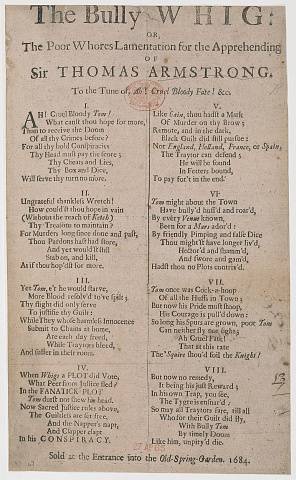 The Bully WHIG:
OR,
The Poor Whores Lamentation for the Apprehending
OF
Sir THOMAS ARMSTRONG.
To the Tune of, Ah! Cruel Bloody Fate! &c.
I.
AH! Cruel Bloody Tom!
What canst thou hope for more,
Than to receive the Doom
Of all thy Crimes before?
For all thy bold Conspiracies
Thy Head must pay the score;
Thy Cheats and Lies,
Thy Box and Dice,
Will serve thy turn no more.
II.
Ungrateful thankless Wretch!
How could'st thou hope in vain
(Without the reach of Ketch)
Thy Treasons to maintain?
For Murders long since done and past,
Thou Pardons hast had store,
And yet would'st still
Stab on, and kill,
As if thou hop'dst for more.
III.
Yet Tom, e're he would starve,
More Blood resolv'd to've spilt;
Thy flight did only serve
To justifie thy Guilt:
While They whose harmless Innocence
Submit to Chains at home,
Are each day freed,
While Traytors bleed,
And suffer in their room.
IV.
When Whigs a PLOT did Vote,
What Peer from Justice fled?
In the FANATICK PLOT
Tom durst not shew his head.
Now Sacred Justice rules above,
The Guiltless are set free,
And the Napper's napt,
And Clapper clapt
In his CONSPIRACY.
V.
Like Cain, thou hadst a Mark
Of Murder on thy Brow;
Remote, and in the dark,
Black Guilt did still pursue:
Nor England, Holland, France, or Spain,
The Traytor can defend;
He will be found
In Fetters bound,
To pay for't in the end.
VI.
Tom might about the Town
Have bully'd, huff'd and roar'd,
By every Venus known,
Been for a Mars ador'd:
By friendly Pimping and false Dice
Thou might'st have longer liv'd,
Hector'd and shamm'd,
And swore and gam'd,
Hadst thou no Plots contriv'd.
VII.
Tom once was Cock-a-hoop
Of all the Huffs in Town;
But now his Pride must stoop,
His Courage is pull'd down:
So long his Spurs are grown, poor Tom
Can neither fly nor fight;
Ah Cruel Fate!
That at this rate
The 'Squire shou'd foil the Knight!
VIII.
But now no remedy,
It being his just Reward;
In his own Trap, you see,
The Tygre is ensnar'd;
So may all Traytors fare, till all
Who for their Guilt did fly,
With Bully Tom
By timely Doom
Like him, unpity'd die.
Sold at the Entrance into the Old-Spring-Garden. 1684.